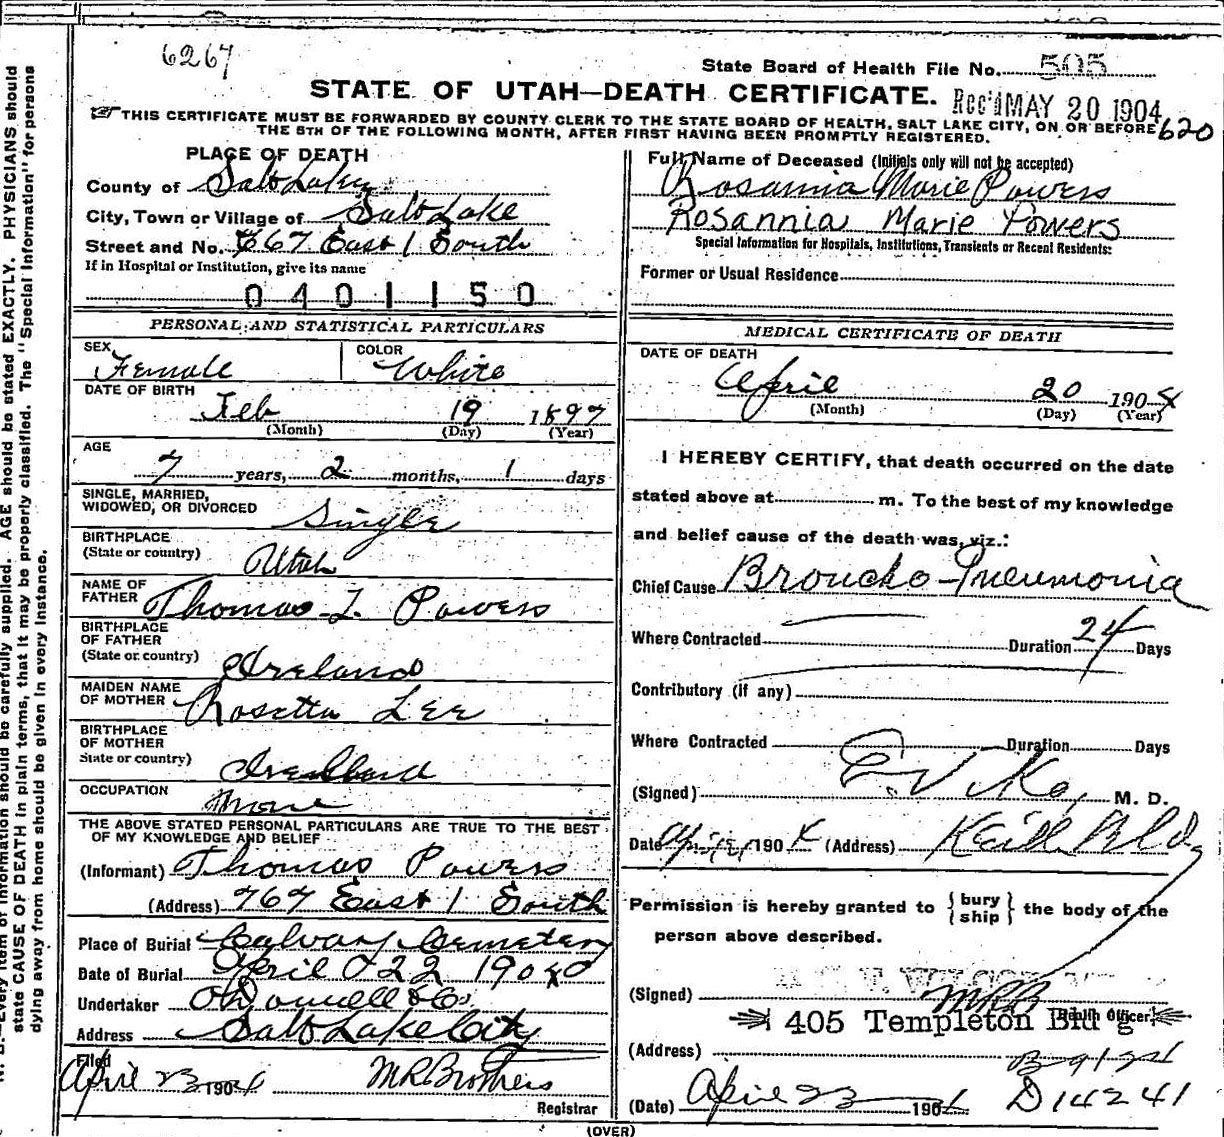 6267
State Board of Health File No. 505
STATE OF UTAH—DEATH CERTIFICATE.
Rec'd MAY 20 1904
THIS CERTIFICATE MUST BE FORWARDED BY COUNTY CLERK TO THE STATE BOARD OF HEALTH, SALT LAKE CITY, ON OR BEFORE
THE 5TH OF THE FOLLOWING MONTH, AFTER FIRST HAVING BEEN PROMPTLY REGISTERED.
620
PLACE OF DEATH
County of Salt Lake
City, Town or Village of Salt Lake
Street and No. 767 East 1 South
If in Hospital or Institution, give its name
0401150
PERSONAL AND STATISTICAL PARTICULARS
SEX Female COLOR White
DATE OF BIRTH
Feb 19 1897
(Month) (Day) (Year)
AGE
7 years, 2 months, 1 days
SINGLE, MARRIED,
WIDOWED, OR DIVORCED Single
BIRTHPLACE
(State or country) Utah
NAME OF
FATHER Thomas L. Powers
BIRTHPLACE
OF FATHER
(State or country) Ireland
MAIDEN NAME
OF MOTHER Rosetta Lee
BIRTHPLACE
OF MOTHER
State or country)
OCCUPATION None
THE ABOVE STATED PERSONAL PARTICULARS ARE TRUE TO THE BEST
OF MY KNOWLEDGE AND BELIEF
(Informant) Thomas Powers
(Address) 767 East 1 South
Place of Burial Calvary Cemetery
Date of Burial April 22 190
Undertaker O'Donnell & Co.
Address Salt Lake City
Filed
April 23 1904 M R Brothers
Registrar
Full Name of Deceased (Initials only will not be accepted)
Rosannia Marie Powers
Rosannia Marie Powers
Special Information for Hospitals, Institutions, Transients or Recent Residents:
Former or Usual Residence
MEDICAL CERTIFICATE OF DEATH
DATE OF DEATH
April 20 1904
(Month) (Day) (Year)
I HEREBY CERTIFY, that death occurred on the date
stated above at m. To the best of my knowledge
and belief cause of the death was, viz.:
Chief Cause Broncho-Pneumonia
Where Contracted Duration 24 Days
Contributory (if any)
Where Contracted Duration Days
(Signed) M. D.
Date 1904 (Address) Keith Bld
Permission is hereby granted to { bury ship } the body of the
person above described.
(Signed) MRB Health Officer.
405 Templeton Bld'g
(Address)
B 9124
(Date) April 23 1904 D 14241
(OVER)
N. B.—Every item of information should be carefully supplied. AGE should be stated EXACTLY. PHYSICIANS should
state CAUSE OF DEATH in plain terms, that it may be properly classified. The "Special Information" for persons
dying away from home should be given in every instance.